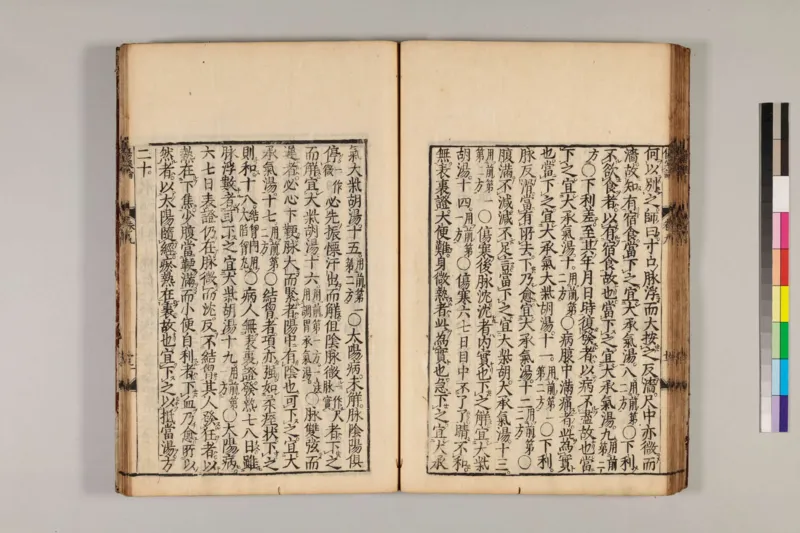 何以別之師曰寸口脉浮而大按之反濇尺中亦微而
濇故知有宿食當下之宜大承氣湯八用前第二方○下利
不欲食者以有宿食故也當下之宜大承氣湯九用前第二
方○下利差至其年月日時復發者以病不盡故也當
下之宜大承氣湯十用前第二方○病腹中滿痛者此為實
也當下之宜大承氣大柴胡湯十一用前第一第二方○下利
脉反滑當有所去下乃愈宜大承氣湯十二用前第二方○
腹滿不減減不足言當下之宜大柴胡大承氣湯十三
用前第一第二方○傷寒後脉沈沈者內實也下之解宜大柴
胡湯十四用前第一方○傷寒六七日目中不了了睛不和
無表裏證大便難身微熱者此為實也急下之宜大承
氣大柴胡湯十五用前第一第二方○太陽病未解脉陰陽俱
停一作微必先振慄汗出而解但陰脉微一作尺脉實者下之
而解宜大柴胡湯十六用前第一方一法用調胃承氣湯○脉雙弦而
遲者必心下鞕脉大而緊者陽中有陰也可下之宜大
承氣湯十七用前第二方○結胷者項亦強如柔痓狀下之
則和十八結胷門用大陷胷丸○病人無表裏證發熱七八日雖
脉浮數者可下之宜大柴胡湯十九用前第一方○太陽病
六七日表證仍在脉微而沈反不結胷其人發狂者以
熱在下焦少腹當鞕滿而小便自利者下血乃愈所以
然者以太陽隨經瘀熱在裏故也宜下之以抵當湯方
二十